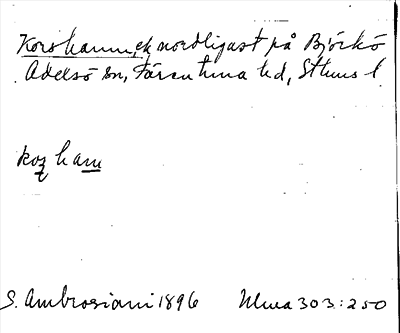 Korshamn, ek nordligast på Björkö
Adelsö sn, Färentuna hd, Sthms l
koz ham
S. Ambrosiani 1896 Ulma 303:250